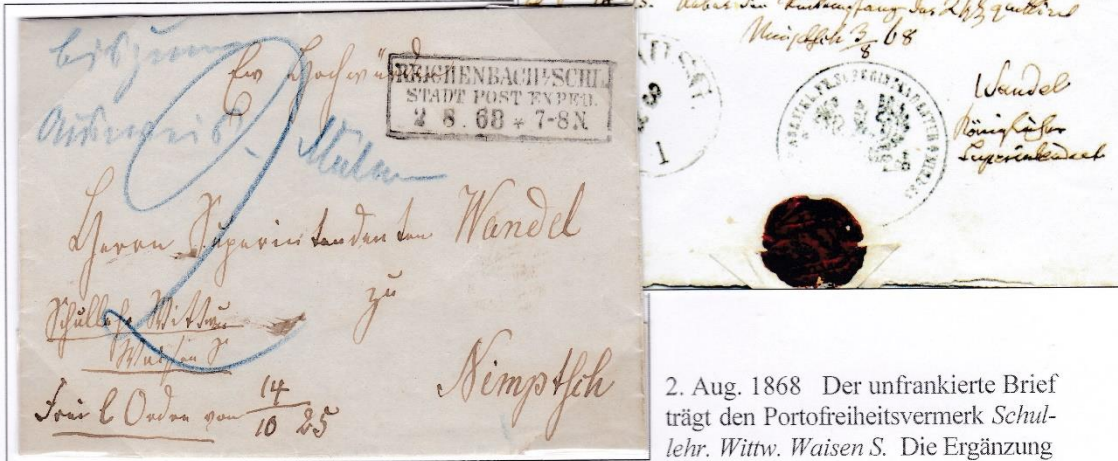 bis zum
Ausweis
Ew Hochwürden
REICHENBACH i/SCHL.
STADT POST EXPED.
2 8. 68 * 7-8 N.
Herrn Superintendenten Wandel
zu
Nimptsch
Schulleh. Wittwen
Waisen S
Frei l Ordre von 14/10 25
Nimptsch 3/8 68
3
1
Wandel
Königlicher
Superintendent
2. Aug. 1868 Der unfrankierte Brief
trägt den Portofreiheitsvermerk Schul-
lehr. Wittw. Waisen S. Die Ergänzung